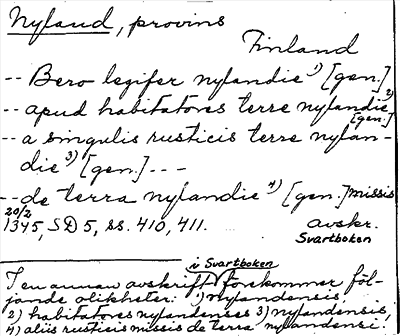 Nyland, provins
Finland
-- Bero legifer nylandie 1) [gen.]
-- apud habitatores terre nylandie 2) [gen.]
-- a singulis rusticis terre nylan-
die 3) [gen.] ---
-- de terra nylandie 4) [gen.] missis
20/2
1345, SD 5, ss. 410, 411. avskr.
Svartboken
i Svartboken
I en annan avskrift förekommer föl-
jande olikheter: 1) nylandensis,
2) habitatores nylandenses 3) nylandensis,
4) aliis rusticis missis de terra nylandensi.